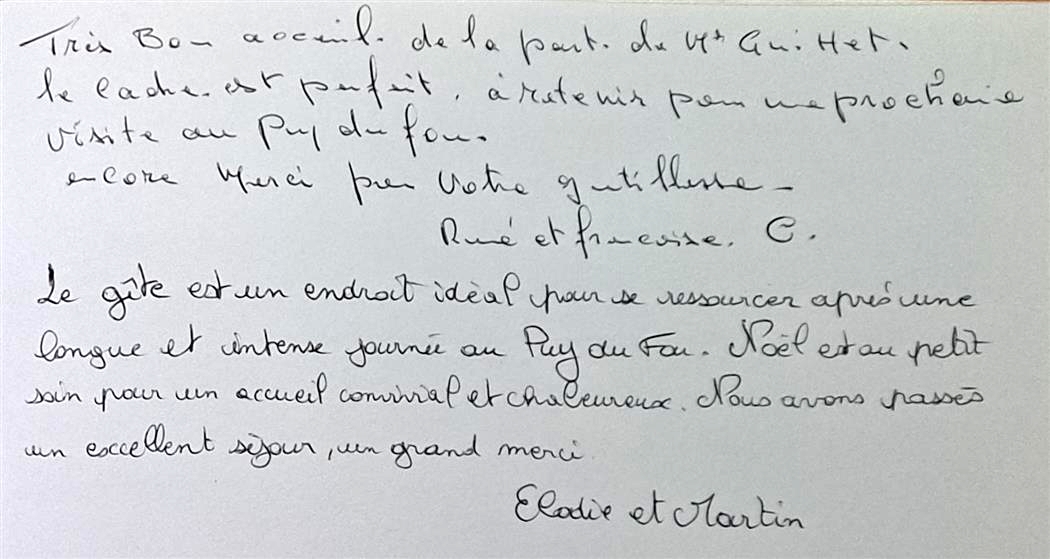 Très Bon acceuil. de la part. de Mr Guittet.
le cadre. est parfait, à retenir pour une prochaine
visite au Puy du fou.
encore Merci pour votre gentillesse -
René et francoise. C.
Le gîte est un endroit idéal pour se ressourcer après une
longue et intense journée au Puy du Fou. Noël est au petit
soin pour un accueil convivial et chaleureux. Nous avons passés
un excellent séjour, un grand merci
Elodie et Martin